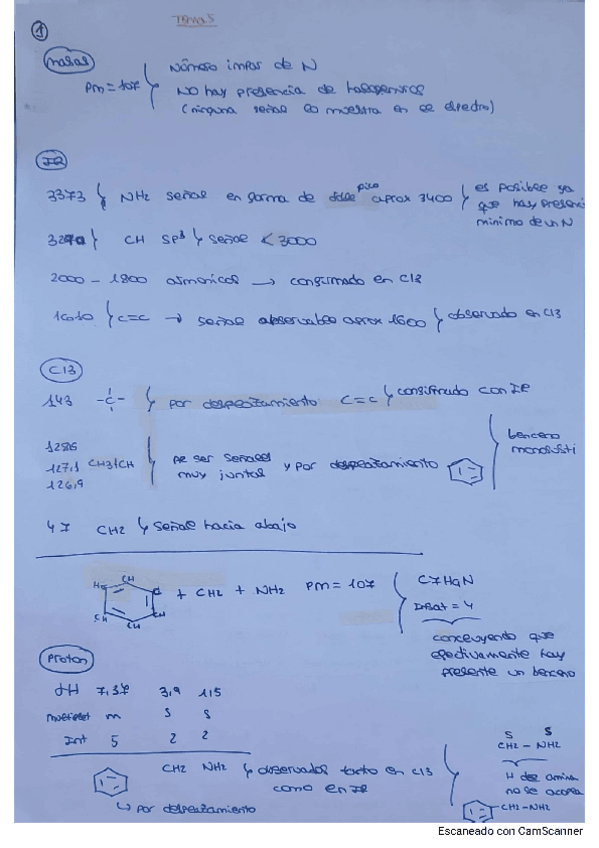 Tema 5
1
masas
Pm = 107
Número impar de N
NO hay presencia de halogenuros
(ninguna señal lo muestra en el espectro)
IR
3373 NH2 señal en forma de pico aprox 3400 es posible ya
que hay presencia
mínimo de un N
CH sp3 señal < 3000
2000 - 1800 armonicos → confirmado en C13
1610 C=C → señal observables aprox 1600 observado en C13
C13
143 -C- por desplazamiento C=C confirmado con IR
128,6
127,1 CH3/CH
126,9
Al ser señales
muy juntas y por desplazamiento
benceno
monosusti
47 CH2 señal hacia abajo
HC CH C CH CH CH + CH2 + NH2 Pm = 107
C7H9N
Insat = 4
concluyendo que
efectivamente hay
presente un benceno
Proton
δH 7,37 3,9 1,5
multiplet m s s
Int 5 2 2
CH2 NH2 observados tanto en C13
como en IR
↳ por desplazamiento
s s
CH2 - NH2
H del amina
no se acopla
CH2-NH2
Escaneado con CamScanner